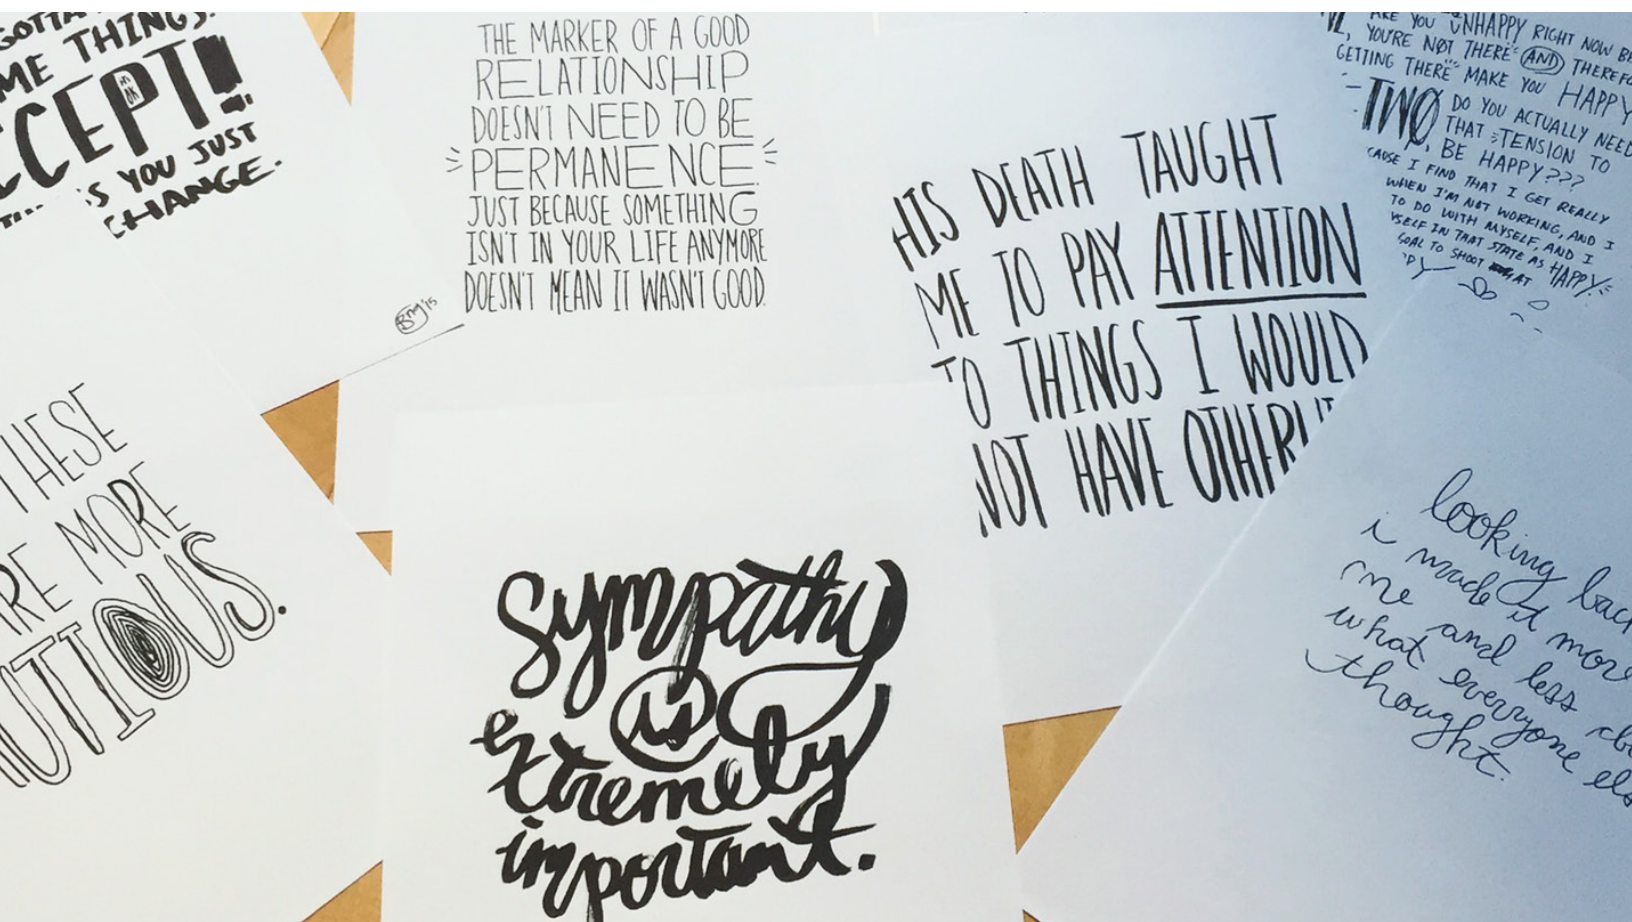 GOTTA
ME THINGS.
CCEPT!
IT'S OK
'S YOU JUST
CHANGE.
THE MARKER OF A GOOD
RELATIONSHIP
DOESN'T NEED TO BE
PERMANENCE.
JUST BECAUSE SOMETHING
ISN'T IN YOUR LIFE ANYMORE
DOESN'T MEAN IT WASN'T GOOD.
Bng'15
HIS DEATH TAUGHT
ME TO PAY ATTENTION
TO THINGS I WOULD
NOT HAVE OTHERW
ARE YOU UNHAPPY RIGHT NOW BE
, YOU'RE NOT "THERE" AND THEREFO
"GETTING THERE" MAKE YOU HAPPY
TWO, DO YOU ACTUALLY NEED
THAT TENSION TO
BE HAPPY???
CAUSE I FIND THAT I GET REALLY
WHEN I'M NOT WORKING, AND I
TO DO WITH MYSELF, AND I
YSELF IN THAT STATE AS HAPPY.
GOAL TO SHOOT AT
THESE
RE MORE
UTIOUS.
sympathy
is
extremely
important.
looking back
i made it more
me and less abo
what everyone els
thought.